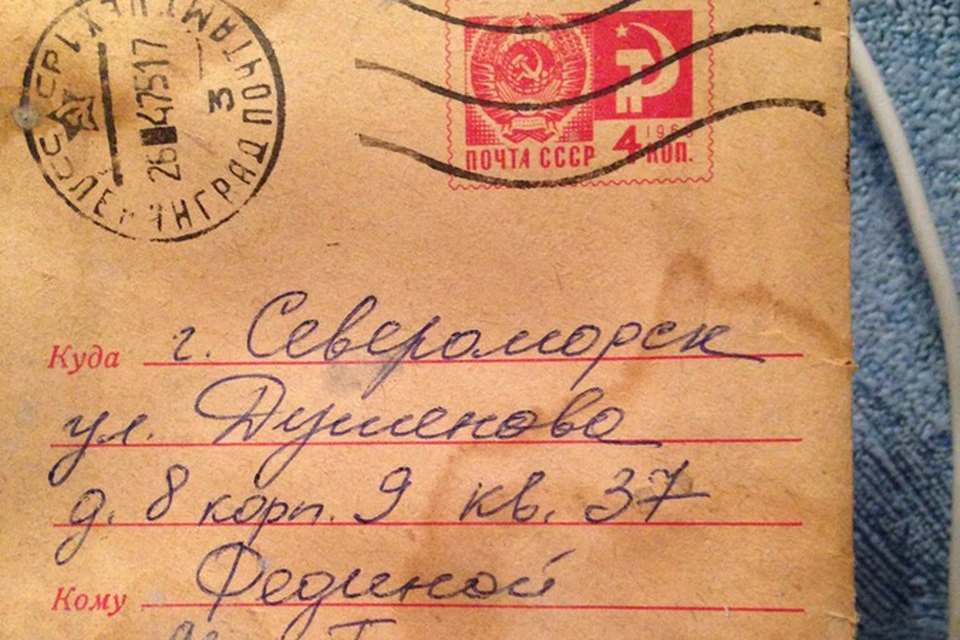 СССР ЛЕНИНГРАД ПОЧТАМТ
26 47517
3
1966
ПОЧТА СССР 4 КОП.
Куда г. Североморск
ул. Душенова
д. 8 корп. 9 кв. 37
Кому Фединой